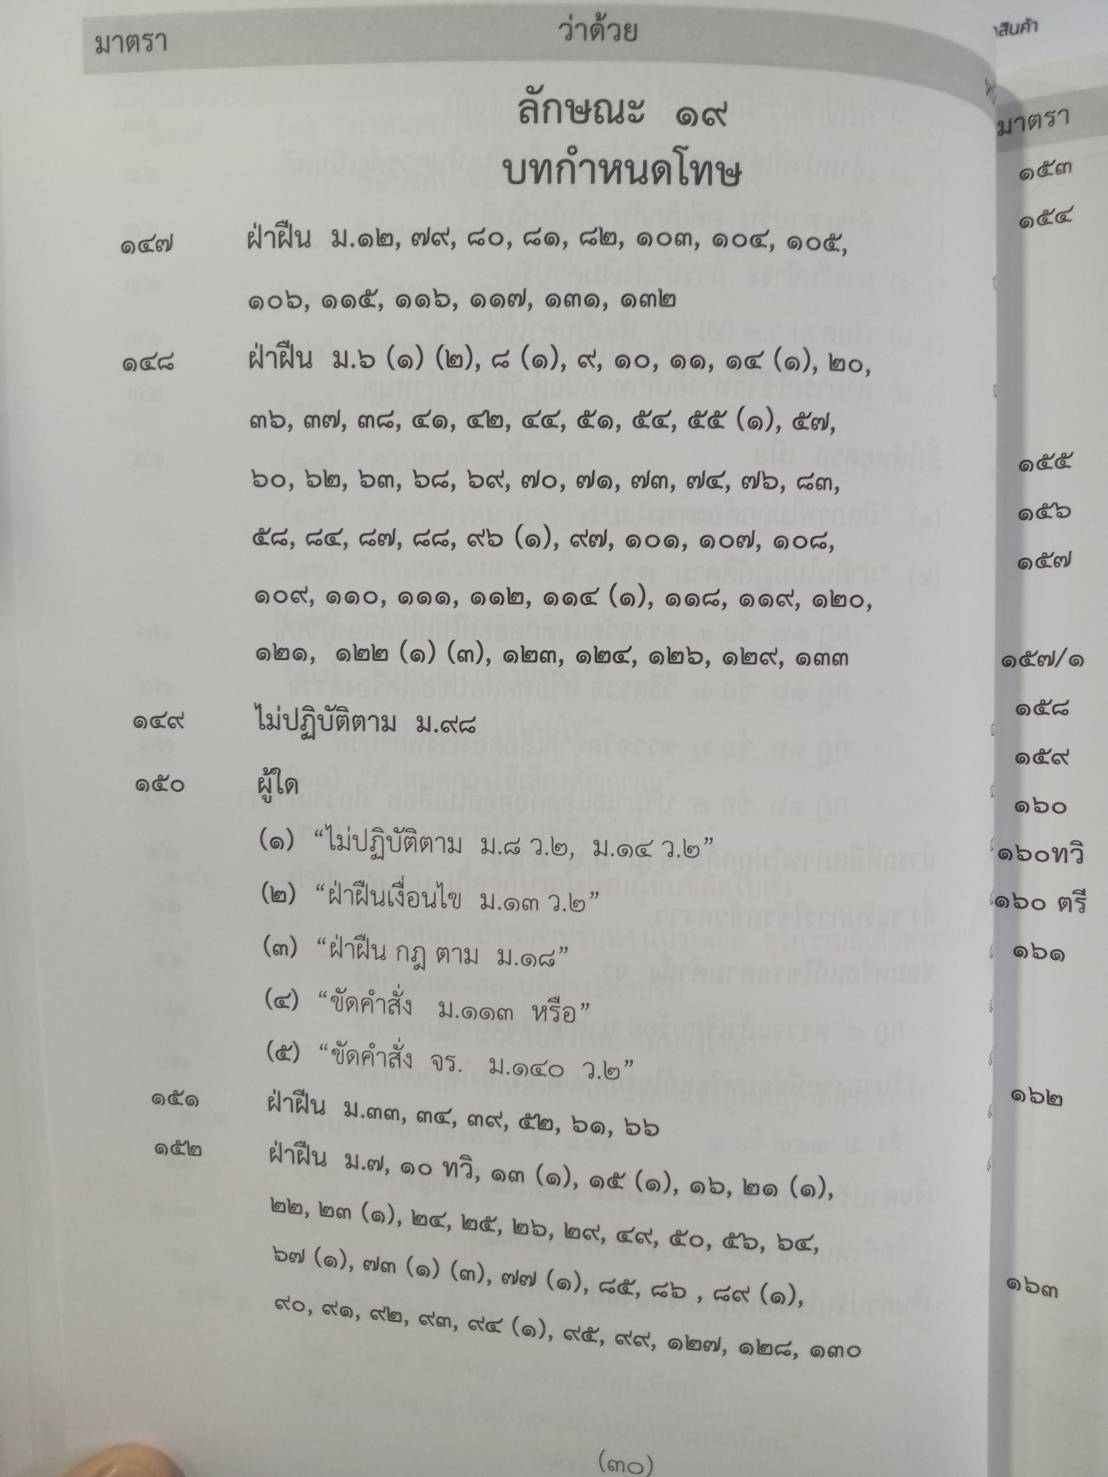 มาตรา ว่าด้วย
ลักษณะ ๑๙
บทกำหนดโทษ
๑๔๗ ฝ่าฝืน ม.๑๒, ๗๙, ๘๐, ๘๑, ๘๒, ๑๐๓, ๑๐๔, ๑๐๕,
๑๐๖, ๑๑๕, ๑๑๖, ๑๑๗, ๑๓๑, ๑๓๒
๑๔๘ ฝ่าฝืน ม.๖ (๑) (๒), ๘ (๑), ๙, ๑๐, ๑๑, ๑๔ (๑), ๒๐,
๓๖, ๓๗, ๓๘, ๔๑, ๔๒, ๔๔, ๕๑, ๕๔, ๕๕ (๑), ๕๗,
๖๐, ๖๒, ๖๓, ๖๘, ๖๙, ๗๐, ๗๑, ๗๓, ๗๔, ๗๖, ๘๓,
๕๘, ๘๔, ๘๗, ๘๘, ๙๖ (๑), ๙๗, ๑๐๑, ๑๐๗, ๑๐๘,
๑๐๙, ๑๑๐, ๑๑๑, ๑๑๒, ๑๑๔ (๑), ๑๑๘, ๑๑๙, ๑๒๐,
๑๒๑, ๑๒๒ (๑) (๓), ๑๒๓, ๑๒๔, ๑๒๖, ๑๒๙, ๑๓๓
๑๔๙ ไม่ปฏิบัติตาม ม.๙๘
๑๕๐ ผู้ใด
(๑) “ไม่ปฏิบัติตาม ม.๘ ว.๒, ม.๑๔ ว.๒”
(๒) “ฝ่าฝืนเงื่อนไข ม.๑๓ ว.๒”
(๓) “ฝ่าฝืน กฎ ตาม ม.๑๘”
(๔) “ขัดคำสั่ง ม.๑๑๓ หรือ”
(๕) “ขัดคำสั่ง จร. ม.๑๔๐ ว.๒”
๑๕๑ ฝ่าฝืน ม.๓๓, ๓๔, ๓๙, ๕๒, ๖๑, ๖๖
๑๕๒ ฝ่าฝืน ม.๗, ๑๐ ทวิ, ๑๓ (๑), ๑๕ (๑), ๑๖, ๒๑ (๑),
๒๒, ๒๓ (๑), ๒๔, ๒๕, ๒๖, ๒๙, ๔๙, ๕๐, ๕๖, ๖๔,
๖๗ (๑), ๗๓ (๑) (๓), ๗๗ (๑), ๘๕, ๘๖ , ๘๙ (๑),
๙๐, ๙๑, ๙๒, ๙๓, ๙๔ (๑), ๙๕, ๙๙, ๑๒๗, ๑๒๘, ๑๓๐
(๓๐)
สินค้า
มาตรา
๑๕๓
๑๕๔
๑๕๕
๑๕๖
๑๕๗
๑๕๗/๑
๑๕๘
๑๕๙
๑๖๐
๑๖๐ทวิ
๑๖๐ ตรี
๑๖๑
๑๖๒
๑๖๓